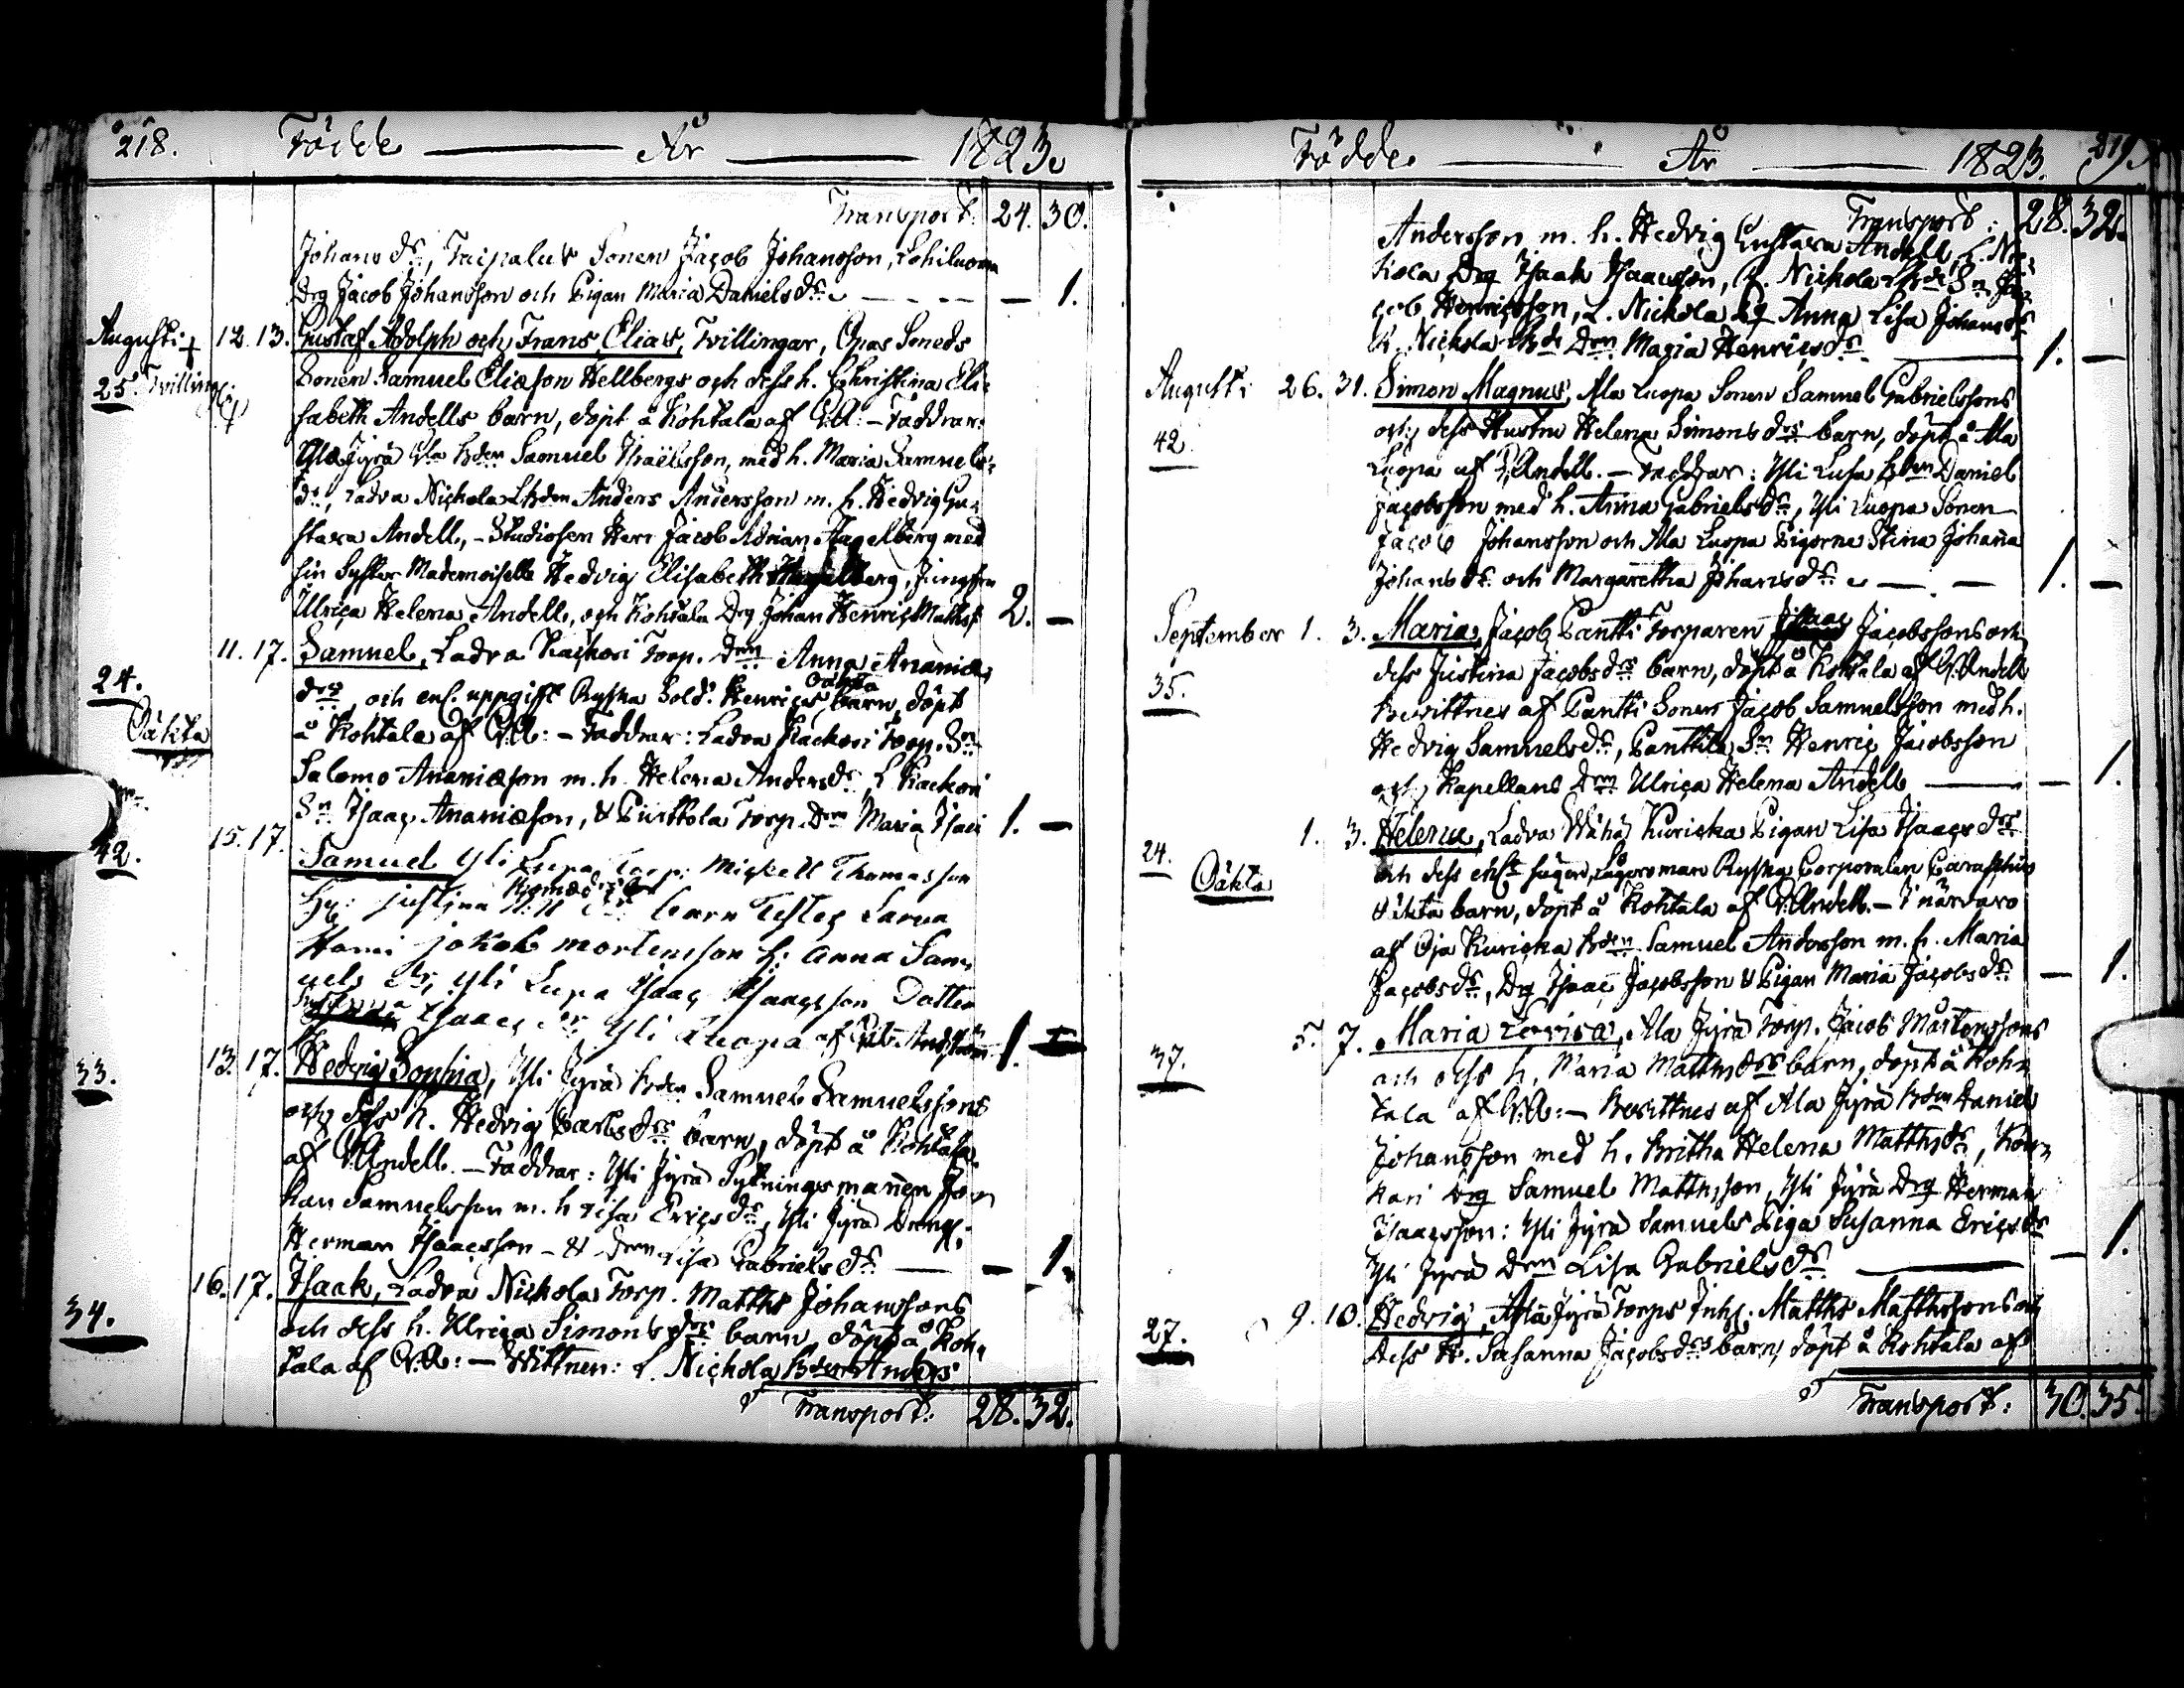 218. Födde År 1823.
Transport: 24. 30.
Johans dr, Taipalus Sonen Jacob Johansson, Lohiluoma
Drg Jacob Johansson och Pigan Maria Daniels dr. — 1.
Augusti 12. 13. Gustaf Adolph och Frans Elias, Tvillingar,
25. Tvilling. Sonen Samuel Eliæson Hellbergs och dess h. Christina Eli-
sabeth Andells barn, döpt å Kohtala af V.A: - Faddrar:
Jyrä Bden Samuel Israelsson, med h. Maria Samuels
dr, Ladva Nickola Bden Anders Andersson m. h. Hedvig Gu-
stava Andell, - Studiosen Herr Jacob Adrian Hagelberg med
sin Syster Mademoiselle Hedvig Elisabeth Hagelberg, Jungfru
Ulrica Helena Andell, och Kohtala Drg Johan Henric Mathss: 2. —
11. 17. Samuel, Ladva Kackori Torp. Drn Anna Ananiæ
24. drs, och enl. uppgift Ryska Sold. Henrics barn, döpt
Oäkta
Oäkta å Kohtala af V.A: - Faddrar: Ladva Kackori Torp. Sn
Salomo Ananiæson m. h. Helena Anders dr, L Kackori
Sn Isaac Ananiæson, & Purttola Torp. Drn Maria Isac 1. —
42. 15. 17. Samuel Yli Lupa Torp: Mickell Thomasson
h: justina barn Testes Larva
Hami jokob mortensson h: anna Sam
uels dr, Yli Lupa Isaac Isaacsson Dotter
Isaacs dr Yli Luopa af 1. —
33. 13. 17. Hedvig Sophia, Yli Jyrä Bden Samuel Samuelssons
och dess h. Hedvig Carls drs barn, döpt å Kohtala
af V.Andell. - Faddrar: Yli Jyrä Sytningsmannen Jo-
han Samuelsson m. h Lisa Erics dr, Yli Jyrä Dreng
Herman Isaacsson - & Drn Lisa Gabriels dr — 1.
34. 16. 17. Isaak, Ladva Nickola Torp. Matths Johanssons
och dess h. Ulrica Simons drs barn, döpt å Koh-
tala af V.A: - Wittnen: L. Nickola Bden Anders
Transport: 28. 32.
Födde År 1823. 219.
Transport: 28. 32.
Andersson m. h. Hedvig Gustava Andell, L. Nic-
kola Drg Isaak Isaacsson, L. Nickola Bde Sn Ja-
cob Henricsson, L. Nickola Pig Anna Lisa Johans dr
L. Nickola Bde Drn Maria Henrics dr. 1. —
Augusti 26. 31. Simon Magnus, Ala Luopa Sonen Samuel Gabrielssons
42. och dess Hustru Helena Simons drs barn, döpt å Ala
Luopa af V.Andell. - Faddrar: Yli Lupa Bden Daniel
Jacobsson med h. Anna Gabriels dr, Yli Luopa Sonen
Jacob Johansson och Ala Luopa Pigorne Stina Johanna
Johans dr och Margaretha Johans dr. 1. —
September 1. 3. Maria, Jacob Pantti Torparen Isaac Jacobssons och
35. dess Justina Jacobs drs barn, döpt å Kohtala af V.Andell
Bevittnes af Pantti Sonen Jacob Samuelsson med h.
Hedvig Samuels dr, Panttila Sn Henric Jacobsson
och Kapellans Drn Ulrica Helena Andell — 1.
24. 1. 3. Helena, Ladva Wähä Kuricka Pigan Lisa Isaacs drs
Oäkta och dess Lägersman Ryska Corporalen
Oäkta barn, döpt å Kohtala af V.Andell. - I närvaro
af Oja Kuricka Bden Samuel Andersson m. h. Maria
Jacobs dr, Drg Isaac Jacobsson & Pigan Maria Jacobs dr — 1.
37. 5. 7. Maria Lovisa, Ala Jyrä Torp. Jacob Mårtenssons
och dess h. Maria Matths drs barn, döpt å Koh-
tala af V.A: - Bevittnes af Ala Jyrä Bden Daniel
Johansson med h. Britha Helena Matths dr,
Drg Samuel Matthsson, Yli Jyrä Drg Herman
Isaacsson: Yli Jyrä Samuels Piga Susanna Erics dr
Yli Jyrä Drn Lisa Gabriels dr — 1.
27. 9. 10. Hedvig, Ala Jyrä Torps Inhs. Matths Matthssons och
dess H. Susanna Jacobs drs barn, döpt å Kohtala af
Transport: 30. 35.